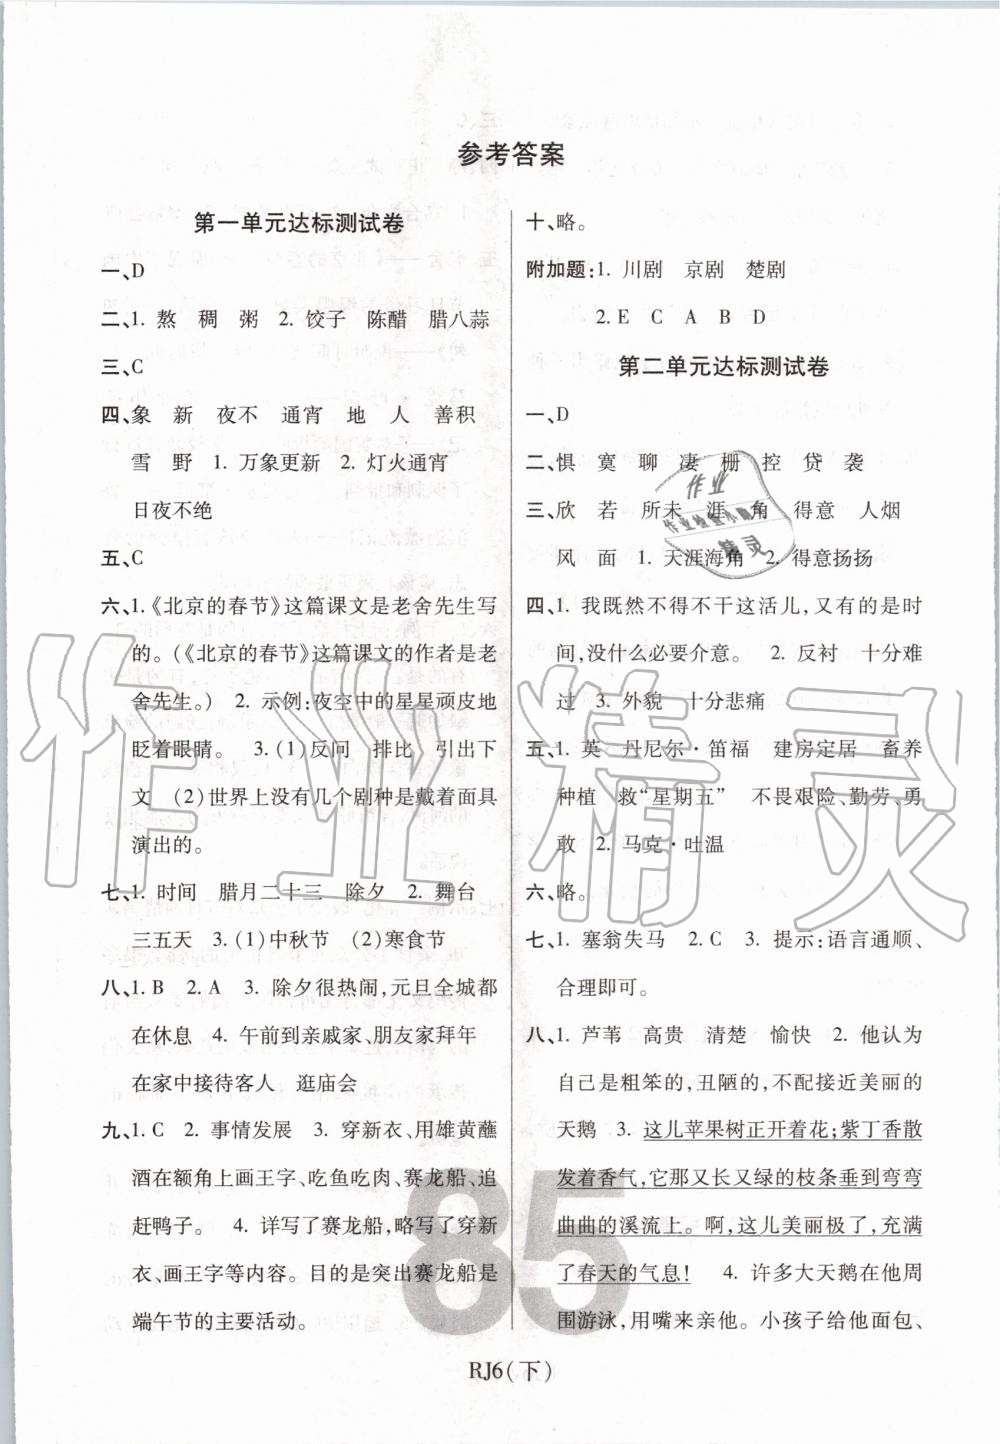 参考答案
第一单元达标测试卷
一、D
二、1. 熬 稠 粥 2. 饺子 陈醋 腊八蒜
三、C
四、象 新 夜不 通宵 地 人 善积
雪 野 1. 万象更新 2. 灯火通宵
日夜不绝
五、C
六、1.《北京的春节》这篇课文是老舍先生写
的。(《北京的春节》这篇课文的作者是老
舍先生。) 2. 示例:夜空中的星星顽皮地
眨着眼睛。 3. (1)反问 排比 引出下
文 (2)世界上没有几个剧种是戴着面具
演出的。
七、1. 时间 腊月二十三 除夕 2. 舞台
三五天 3. (1)中秋节 (2)寒食节
八、1. B 2. A 3. 除夕很热闹,元旦全城都
在休息 4. 午前到亲戚家、朋友家拜年
在家中接待客人 逛庙会
九、1. C 2. 事情发展 3. 穿新衣、用雄黄蘸
酒在额角上画王字、吃鱼吃肉、赛龙船、追
赶鸭子。 4. 详写了赛龙船,略写了穿新
衣、画王字等内容。目的是突出赛龙船是
端午节的主要活动。
十、略。
附加题:1. 川剧 京剧 楚剧
2. E C A B D
第二单元达标测试卷
一、D
二、惧 寞 聊 凄 栅 控 贷 袭
三、欣 若 所未 涯 角 得意 人烟
风 面 1. 天涯海角 2. 得意扬扬
四、1. 我既然不得不干这活儿,又有的是时
间,没什么必要介意。 2. 反衬 十分难
过 3. 外貌 十分悲痛
五、1. 英 丹尼尔·笛福 建房定居 畜养
种植 救“星期五” 不畏艰险、勤劳、勇
敢 2. 马克·吐温
六、略。
七、1. 塞翁失马 2. C 3. 提示:语言通顺、
合理即可。
八、1. 芦苇 高贵 清楚 愉快 2. 他认为
自己是粗笨的,丑陋的,不配接近美丽的
天鹅 3. 这儿苹果树正开着花;紫丁香散
发着香气,它那又长又绿的枝条垂到弯弯
曲曲的溪流上。啊,这儿美丽极了,充满
了春天的气息! 4. 许多大天鹅在他周
围游泳,用嘴来亲他。小孩子给他面包、
作业
作业检查小助手
精灵
作业精灵
85
RJ6(下)